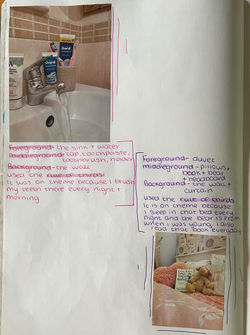 Foreground - the sink + water
Middleground - tap, toothpaste,
toothbrush, holder
Background - the wall
used the rule of thirds
It was on theme because i brush
my teeth there every night +
morning
Foreground - duvet
Middleground - pillows,
book + bear
+ headboard
Background - the wall +
curtain
used the rule of thirds
It is on theme because
I sleep in that bed every
night and the bear is from
when I was young, I also
read that book everyday